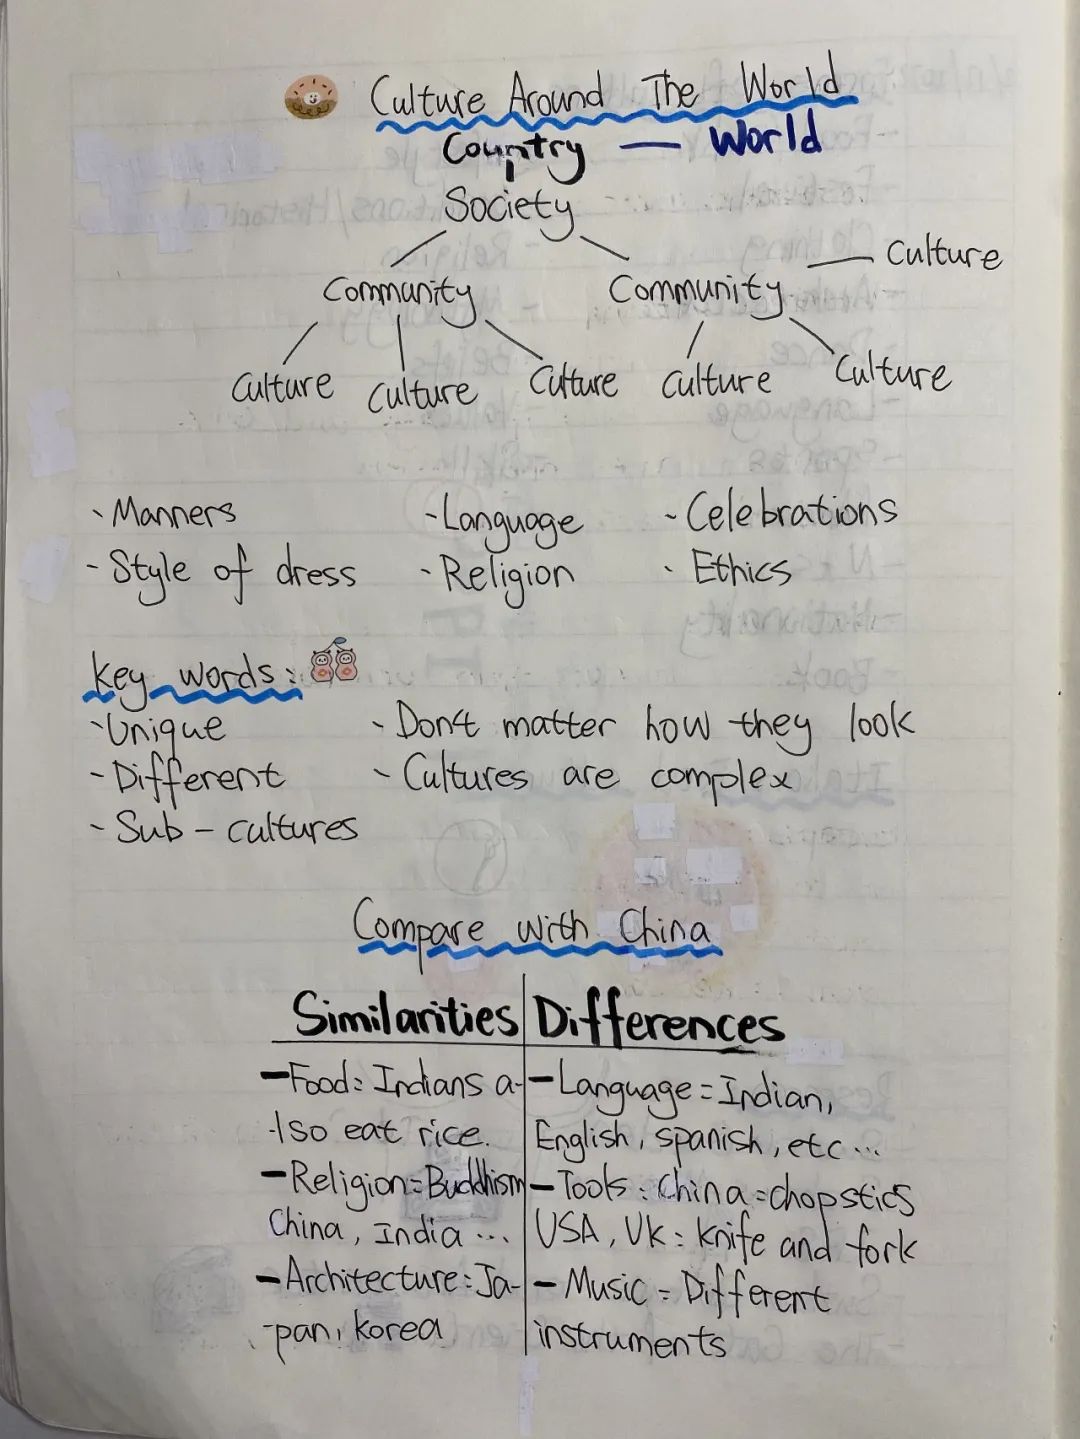 Culture Around The World
Country — World
Society
Culture
Community Community
Culture Culture Culture Culture Culture
- Manners - Language - Celebrations
- Style of dress - Religion - Ethics
key words:
- Unique - Don't matter how they look
- Different - Cultures are complex
- Sub - cultures
Compare with China
Similarities Differences
- Food: Indians a- - Language: Indian,
-lso eat rice. English, spanish, etc...
- Religion: Buddhism - Tools: China: chopstics
China, India ... USA, Uk: knife and fork
- Architecture: Ja- - Music: Different
-pan, korea instruments